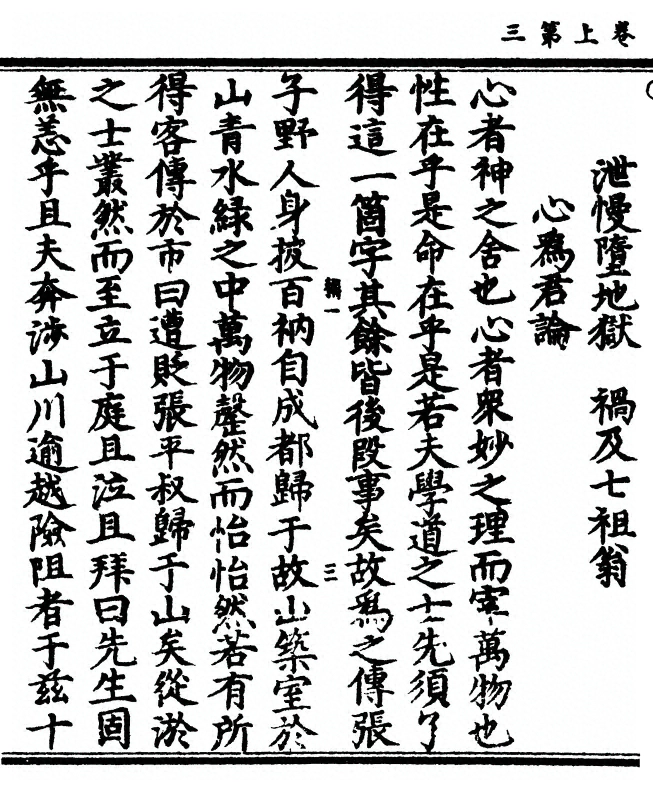 卷上第三
泄慢墮地獄　禍及七祖翁
心爲君論
心者神之舍也心者眾妙之理而宰萬物也
性在乎是命在乎是若夫學道之士先須了
得這一箇字其餘皆後段事矣故爲之傳張
稱一　三
子野人身披百衲自成都歸于故山築室於
山青水緑之中萬物罄然而怡怡然若有所
得客傳於市曰遭貶張平叔歸于山矣從游
之士叢然而至立于庭且泣且拜曰先生固
無恙乎且夫奔涉山川逾越險阻者于兹十